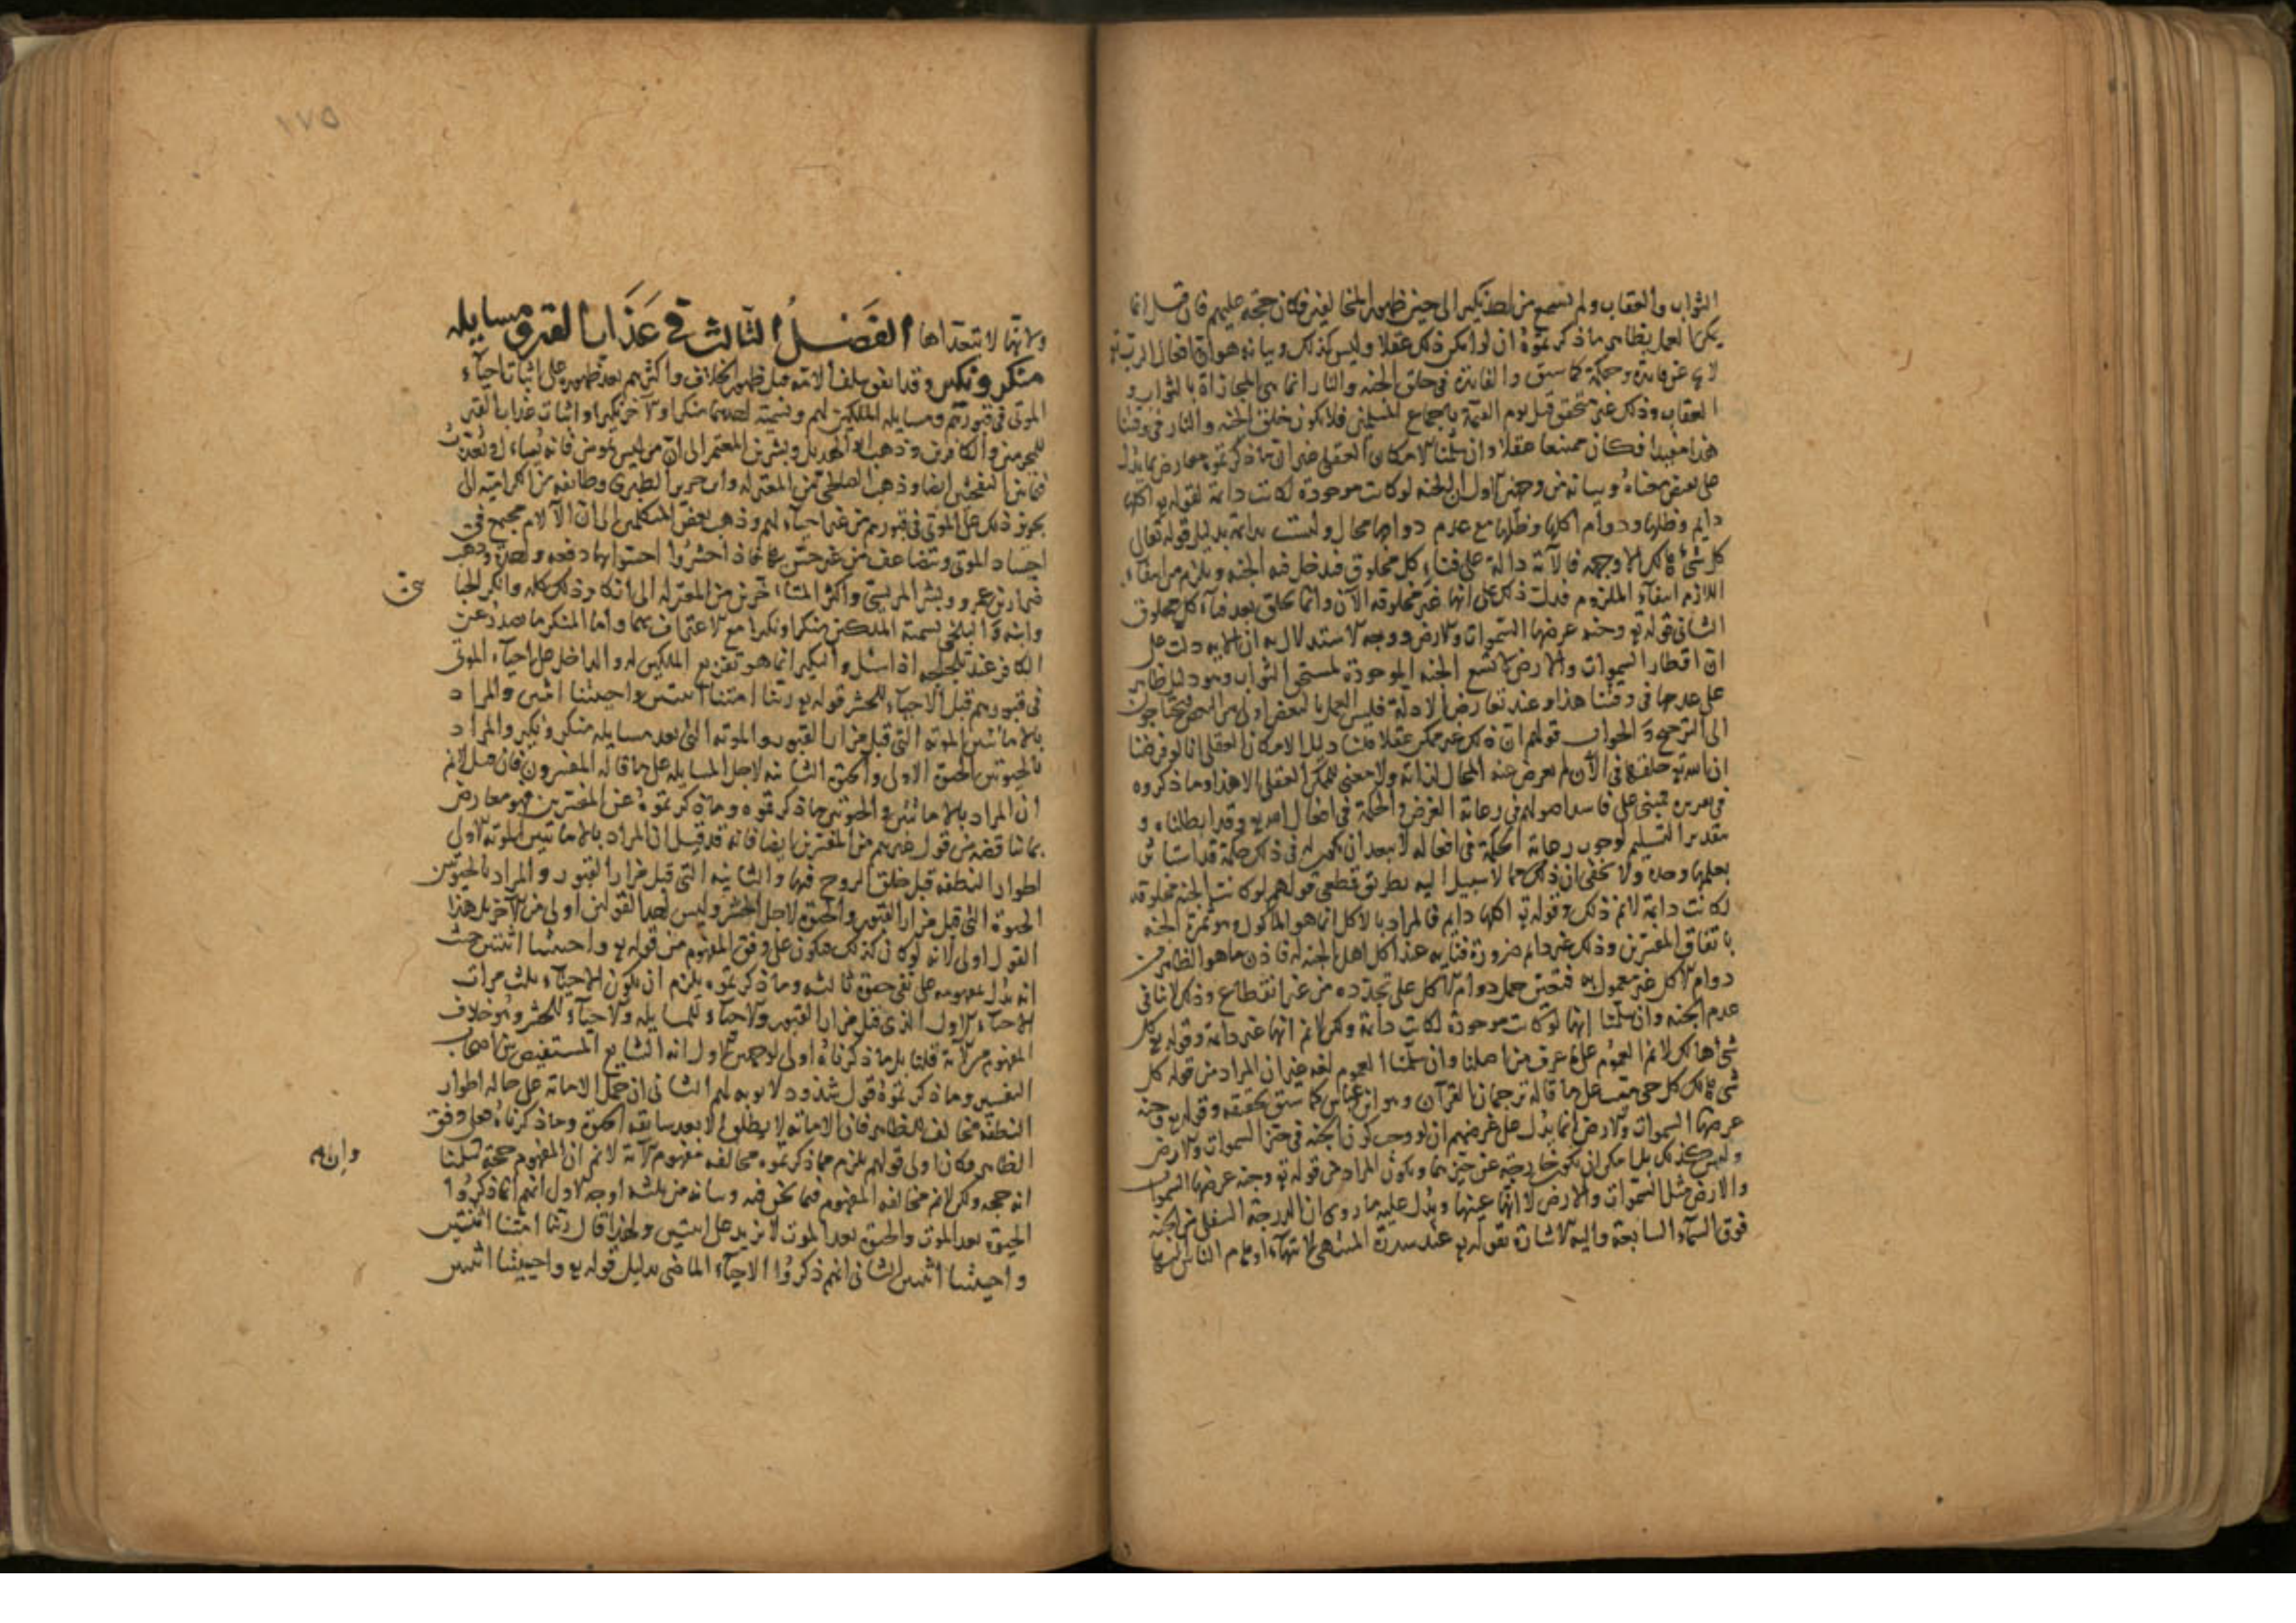 الثواب والعقاب ولم نسمع من نكير الى حين ظهور المخالفين فكان حجة عليهم فان قيل انما
يمكن العمل بظاهر ما ذكرتموه ان لو امكن ذلك عقلا وليس كذلك وبيانه هو ان افعال الرب تع
لا عن فايدة وحكمة كما سبق والفايدة في خلق الجنه والنار انما هى المجازاة بالثواب و
العقاب وذلك غير متحقق قبل يوم القيمة باجماع المسلمين فلا يكون خلق الجنه والنار في وقتنا
هذا مفيدا فكان ممتنعا عقلا وان سلمنا الامكان العقلى غير ان ما ذكرتموه معارض بما يدل
على نقيض معناه وبيانه من وجهين الاول ان الجنه لو كانت موجودة لكانت دايمة لقوله تع اكلها
دايم وظلها ودوام اكلها وظلها مع عدم دوامها محال وليست بدايمة بدليل قوله تعالى
كل شئ هالك الا وجهه فالآية دالة على فناء كل مخلوق فتدخل فيه الجنه ويلزم من انتفاء
اللازم انتفآء الملزوم فدلت ذلك على انها غير مخلوقه الآن وانما تخلق بعد فنآء كل مخلوق
الثانى قوله تع وجنه عرضها السموات والارض ووجه الاستدلال به ان الايه دلت على
ان اقطار السموات والارض لا تسع الجنه الموجودة لمستحق الثواب وهو دليل ظاهر
على عدمها فى وقتنا هذا وعند تعارض الادلة فليس العمل بالبعض اولى من البعض فتحتاجون
الى الترجيح والجواب قولهم ان ذلك غير ممكن عقلا قلنا دليل الامكان العقلى انا لو فرضنا
ان الله تع خلقها فى الآن لم يعرض عنه المحال لذاته ولا معنى للممكن العقلى الا هذا وما ذكروه
فى تقريره فمبنى على فاسد اصولهم فى رعاية الغرض والحكمة فى افعال الله تع وقد ابطلناه و
بتقدير التسليم لوجوب رعاية الحكمة فى افعاله لا يبعد ان يكون له فى ذلك حكمة قد استاثر
بعلمها وحده ولا يخفى ان ذلك مما لا سبيل اليه بطريق قطعى قولهم لو كانت الجنه مخلوقه
لكانت دايمة لانم ذلك وقوله تع اكلها دايم فالمراد بالاكل انما هو الماكول وهو ثمرة الجنه
باتفاق المفسرين وذلك غير دايم ضرورة فنايه عند اكل اهل الجنه له فاذن ما هو الظاهر من
دوام الاكل غير معمول به فتعين حمل دوام الاكل على تجدده من غير انقطاع وذلك لا ينافى
عدم الجنه وان سلمنا انها لو كانت موجودة لكانت دايمة ولكن لانم انها غير دايمة وقوله تع كل
شئ هالك لانم العموم على ما عرف من اصلنا وان سلمنا العموم لغه غير ان المراد من قوله كل
شئ هالك كل حى ميت على ما قاله ترجمان القرآن وهو ابن عباس كما سبق تحقيقه وقوله تع وجنه
عرضها السموات والارض انما يدل على غرضهم ان لو وجب كون الجنه فى حيز السموات والارض
وليس كذلك بل امكن ان تكون خارجة عن حيزهما ويكون المراد من قوله تع وجنه عرضها السموات
والارض مثل السموات والارض لا انها عينها ويدل عليه ما روى ان الدرجة السفلى من الجنه
فوق السمآء السابعة واليه الاشارة بقوله تع عند سدرة المنتهى
١٧٥
ولانها لا تتعداها الفصل الثالث فى عذاب القبر ومسايله
منكر ونكير وقد اتفق سلف الامه قبل ظهور الخلاف واكثرهم بعد ظهوره على اثبات احيآء
الموتى فى قبورهم ومسايله الملكين لهم وتسمية احدهما منكرا والآخر نكيرا واثبات عذاب القبر
للمجرمين والكافرين وذهب ابو الهذيل وبشر بن المعتمر الى ان من ليس بمومن فانه يساءل ويعذب
فيما بين النفختين ايضا وذهب الصالحى من المعتزله وابن جرير الطبرى وطايفه من الكراميه الى
تجويز ذلك على الموتى فى قبورهم من غير احيآء لهم وذهب بعض المتكلمين الى ان الآلام تجتمع فى
اجساد الموتى وتتضاعف من غير حس بها فاذا حشروا احسوا بها دفعه واحدة وذهب
ضرار بن عمرو وبشر المريسى واكثر المتاخرين من المعتزله الى انكار ذلك كله وانكر الجبا
ئى
وابنه والبلخى تسمية الملكين منكرا ونكيرا مع الاعتراف بهما وانما المنكر ما يصدر عن
الكافر عند تلجلجه اذا سئل والنكير انما هو تقريع الملكين له والدليل على احياء الموتى
فى قبورهم قبل الاحياء للحشر قوله تع ربنا امتنا اثنتين واحييتنا اثنتين والمراد
بالاماتتين الموته التى قبل مزار القبور والموته التى بعد مسايله منكر ونكير والمراد
بالحيوتين الحيوة الاولى والحيوة الثانيه لاجل المسايله على ما قاله المفسرون فان قيل لانم
ان المراد بالاماتتين والحيوتين ما ذكرتموه وما ذكرتموه عن المفسرين فهو معارض
بما يناقضه من قول غيرهم من المفسرين ايضا فانه قد قيل ان المراد بالاماتتين الموته الاولى
اطوار النطفه قبل خلق الروح فيها والثانيه التى قبل مزار القبور والمراد بالحيوتين
الحيوة التى قبل مزار القبور والحيوة لاجل الحشر وليس احد القولين اولى من الآخر بل هذا
القول اولى لانه لو كان كذلك فيكون على وفق المفهوم من قوله تع واحييتنا اثنتين حيث
انه يدل بمفهومه على نفى حيوة ثالثه وما ذكرتموه يلزم ان يكون الاحيآء ثلث مرات
الاحيآء الاول الذى قبل مزار القبور والاحيآء للمسايله والاحيآء للحشر وهو خلاف
المفهوم من الآية قلنا بل ما ذكرناه اولى لوجهين الاول انه الشايع المستفيض بين اصحاب
التفسير وما ذكرتموه قول شذوذ لا يوبه لهم الثانى ان حمل الاماته على حاله اطوار
النطفه مخالف للظاهر فان الاماته لا يطلق الا بعد سابقه الحيوة وما ذكرناه على وفق
الظاهر فكان اولى قولهم يلزم مما ذكرتموه مخالفه مفهوم الآية لانم ان المفهوم حجة سلمنا
وانه
انه حجه ولكن لانم مخالفه المفهوم فيما نحن فيه وبيانه من ثلثه اوجه الاول انهم انما ذكروا
الحيوة بعد الموت والحيوة بعد الموت لا تزيد على اثنتين ولهذا قال ربنا امتنا اثنتين
واحييتنا اثنتين الثانى انهم ذكروا الاحيآء الماضى بدليل قوله تع واحييتنا اثنتين